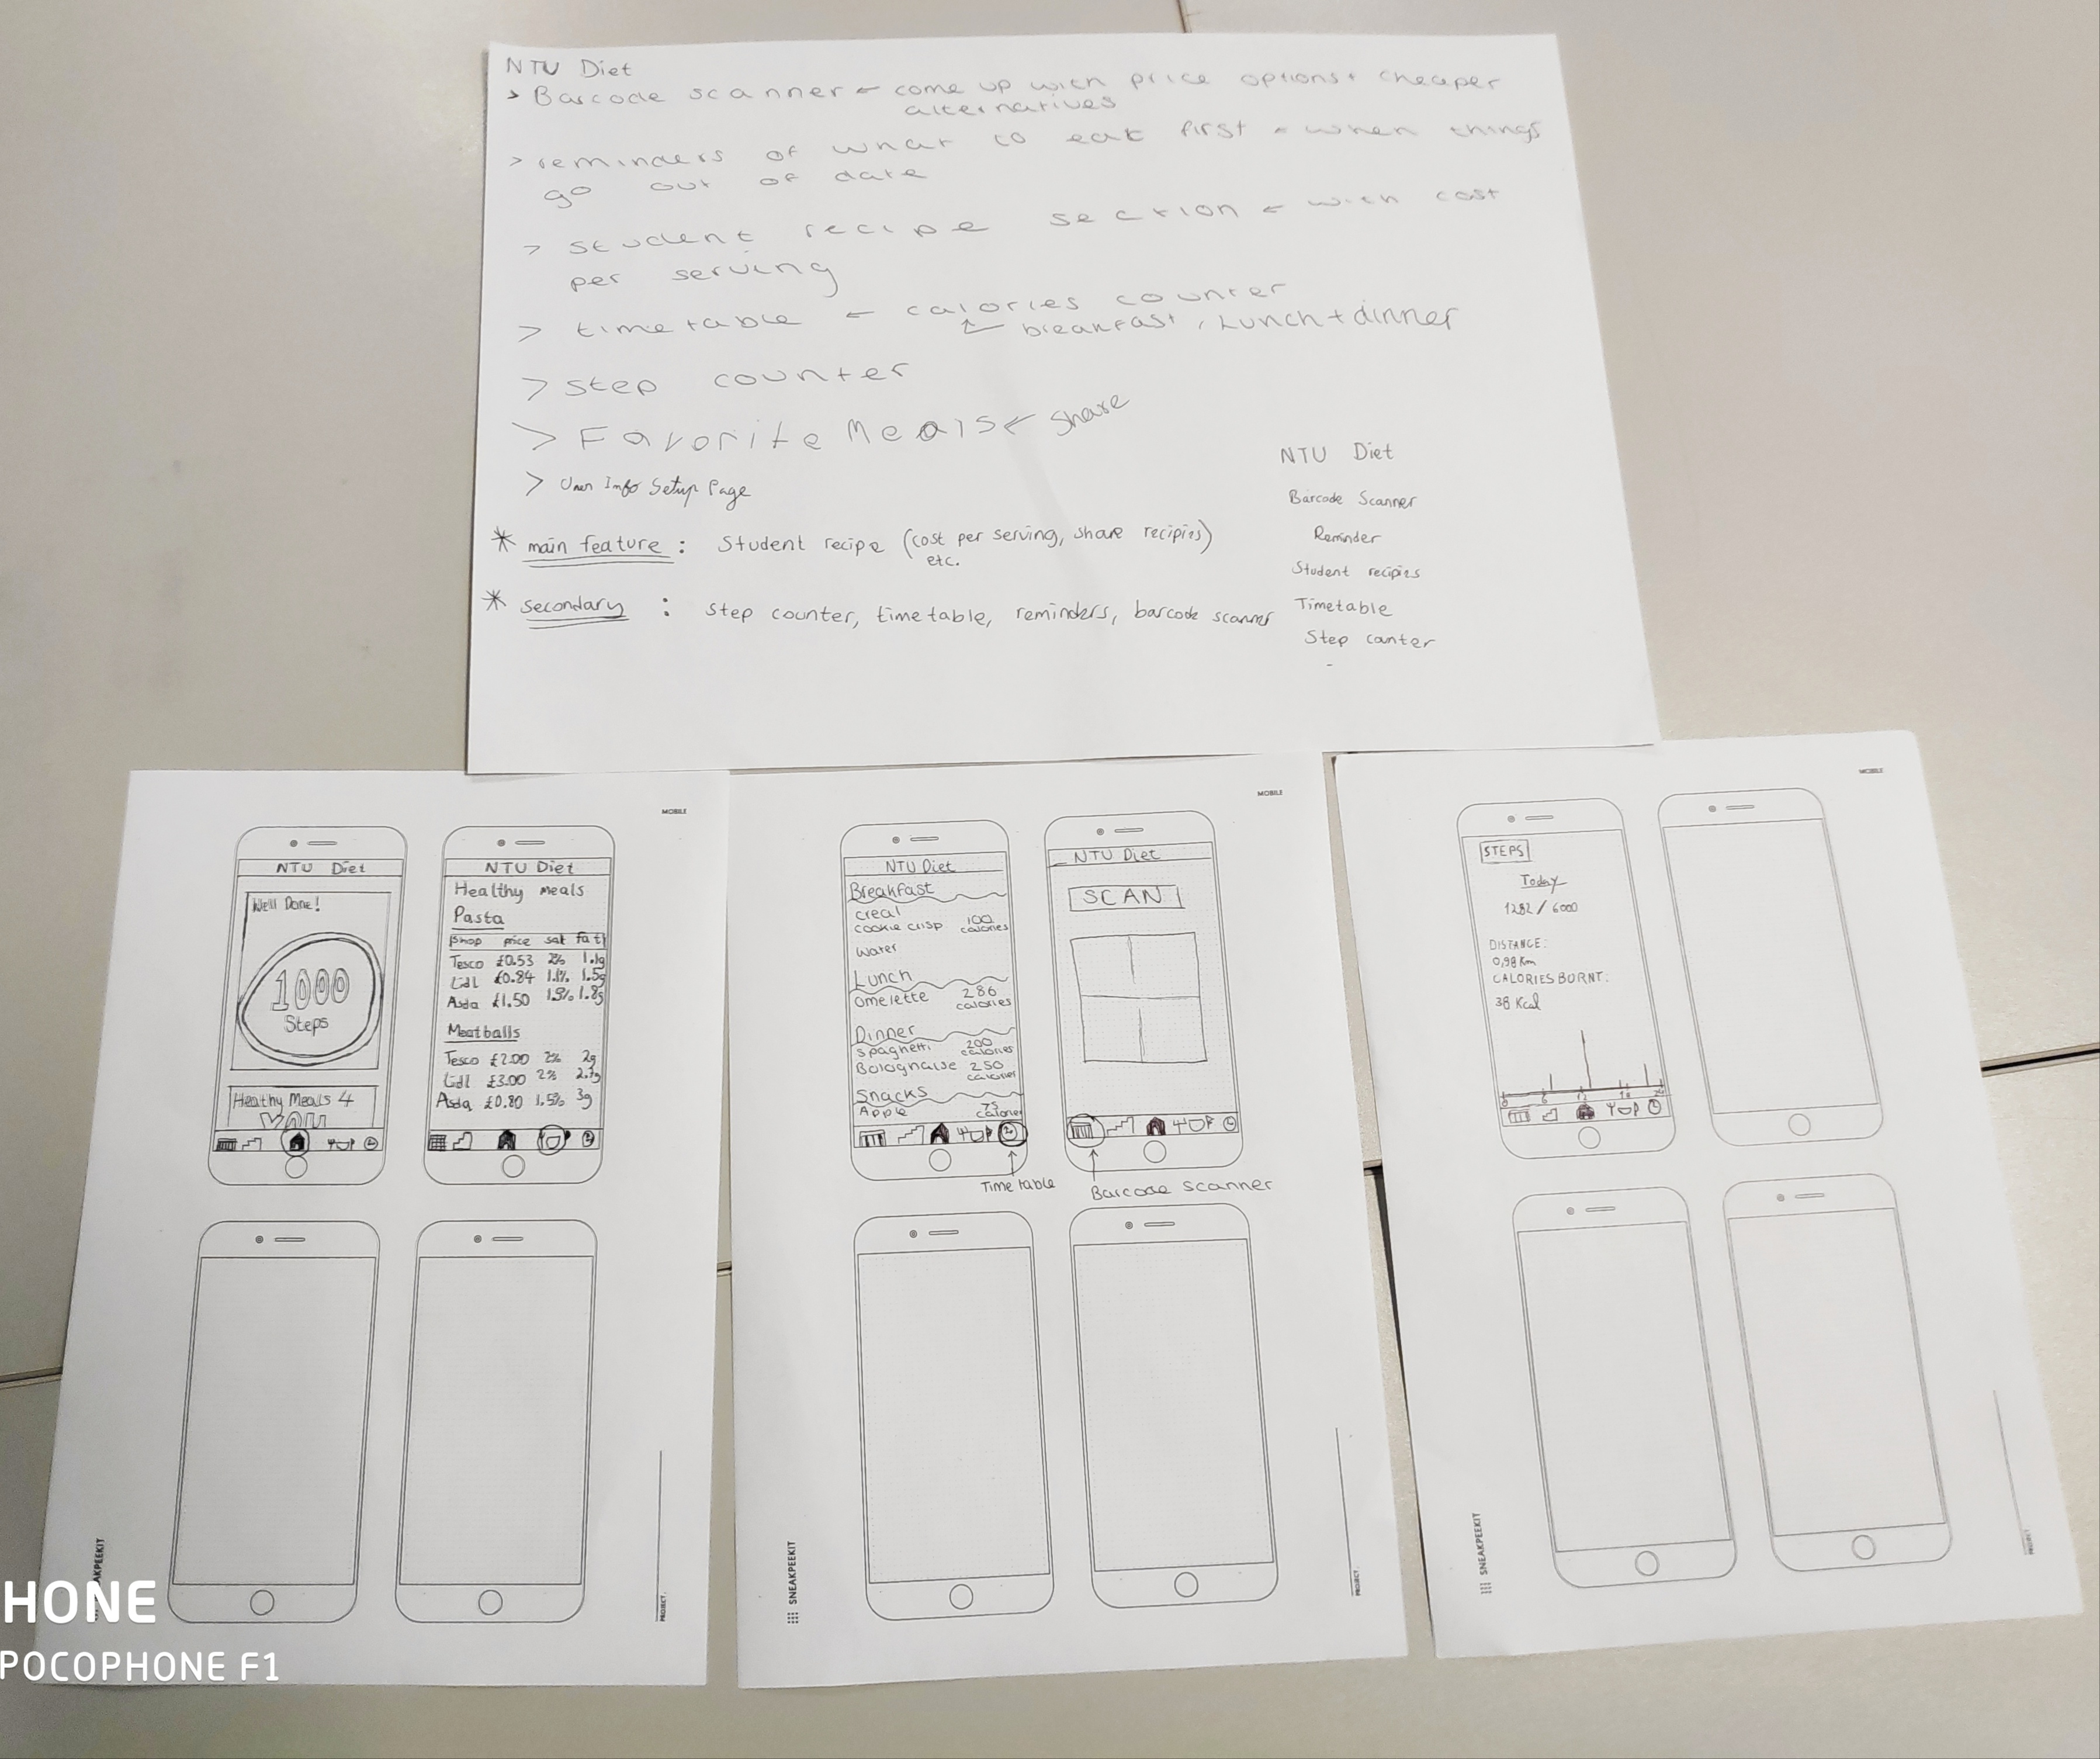 NTU Diet
> Barcode scanner ← come up with price options + cheaper
alternatives
> reminders of what to eat first ← when things
go out of date
> student recipe section ← with cost
per serving
> timetable ← calories counter
← breakfast, Lunch + dinner
> step counter
> Favorite Meals ← share
> User Info Setup Page
* main feature : Student recipe (cost per serving, share recipies)
etc.
* secondary : step counter, timetable, reminders, barcode scanner
NTU Diet
Barcode Scanner
Reminder
Student recipies
Timetable
Step counter
-
MOBILE
NTU Diet
Well Done!
1000
Steps
Healthy Meals 4
YOU
NTU Diet
Healthy meals
Pasta
Shop price salt fat
Tesco £0.53 2% 1.1g
Lidl £0.84 1.1% 1.5g
Asda £1.50 1.5% 1.8g
Meatballs
Tesco £2.00 2% 2g
Lidl £3.00 2% 2.7g
Asda £0.80 1.5% 3g
SNEAKPEEKIT
PROJECT
MOBILE
NTU Diet
Breakfast
creal
cookie crisp 100
calories
water
Lunch
omelette 286
calories
Dinner
spaghetti 200
calories
Bolognaise 250
calories
Snacks
Apple 75
calories
Time table
NTU Diet
SCAN
Barcode scanner
SNEAKPEEKIT
PROJECT
MOBILE
STEPS
Today
1282 / 6000
DISTANCE:
0,98 Km
CALORIES BURNT:
38 Kcal
0 6 12 18
SNEAKPEEKIT
PROJECT
HONE
POCOPHONE F1